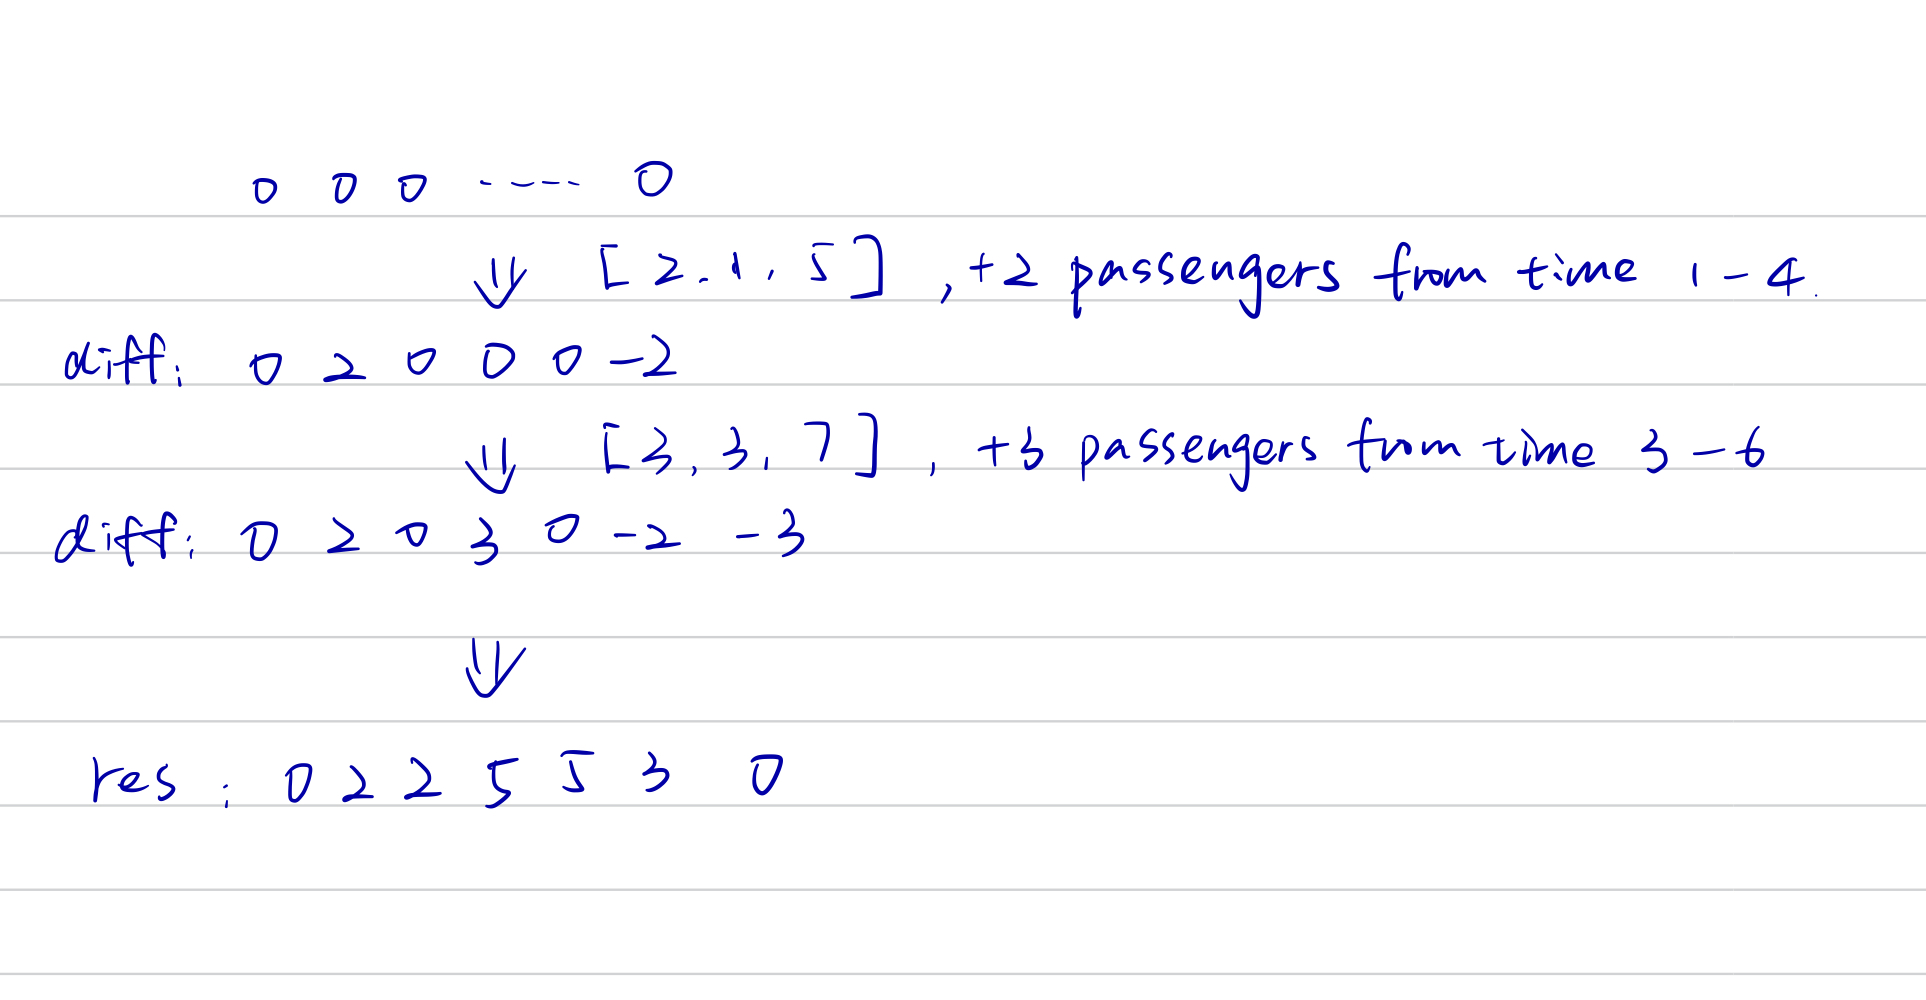 0 0 0 ----- 0
⇓ [2.1,5] ,+2 passengers from time 1-4.
diff: 0 2 0 0 0 -2
⇓ [3,3,7] , +3 passengers from time 3-6
diff: 0 2 0 3 0 -2 -3
⇓
res: 0 2 2 5 5 3 0